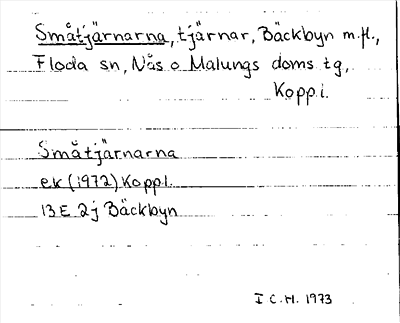 Småtjärnarna, tjärnar, Bäckbyn m.fl.,
Floda sn, Nås o Malungs doms tg,
Kopp.l.
Småtjärnarna
ek (1972) Kopp.l.
13E 2j Bäckbyn
I C.H. 1973